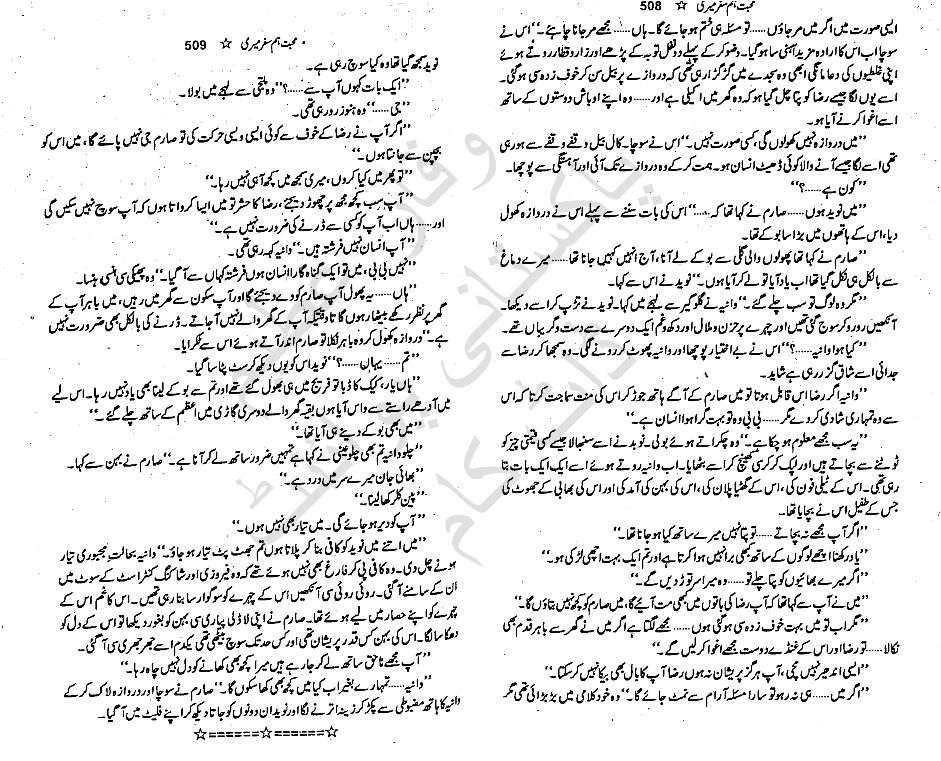 محبت ہم سفر میری ☆ 508
ایسی صورت میں اگر میں مر جاؤں ...... تو مسئلہ ہی ختم ہو جائے گا۔ ہاں ...... مجھے مر جانا چاہئے۔‘‘ اس نے
سوچا اب اس کا ارادہ مزید آہنی سا ہو گیا۔ وضو کر کے پہلے دو نفل توبہ کے پڑھے اور زار و قطار روتے ہوئے
اپنی غلطیوں کی دعا مانگی ابھی وہ سجدے میں گڑگڑا رہی تھی کہ دروازے پر بیل سن کر خوف زدہ سی ہو گئی۔
اسے یوں لگا جیسے رضا کو پتا چل گیا ہو کہ وہ گھر میں اکیلی ہے اور ...... وہ اپنے اوباش دوستوں کے ساتھ
اسے اغوا کرنے آیا ہو۔
’’میں دروازہ نہیں کھولوں گی، کسی صورت نہیں۔‘‘ اس نے سوچا۔ کال بیل وقفے وقفے سے ہو رہی
تھی اسے لگا جیسے آنے والا کوئی ڈھیٹ انسان ہو۔ ہمت کر کے وہ دروازے تک آئی اور آہستگی سے پوچھا۔
’’کون ہے ......؟‘‘
’’میں نوید ہوں ...... صارم نے کہا تھا کہ ......‘‘ اس کی بات سننے سے پہلے اس نے دروازہ کھول
دیا، اس کے ہاتھوں میں بڑا سا بوکے تھا۔
’’صارم نے کہا تھا پھولوں والی گلی سے بوکے لے آنا، آج انہیں کہیں جانا تھا ...... میرے دماغ
سے بالکل ہی نکل گیا تھا اب یاد آیا تو لے کر آیا ہوں۔‘‘ نوید نے اس سے کہا۔
’’مگر وہ لوگ تو سب چلے گئے۔‘‘ دانیہ نے گلوگیر سے لہجے میں کہا۔ نوید نے تڑپ کر اسے دیکھا۔
آنکھیں رو رو کر سوج گئی تھیں اور چہرے پر حزن و ملال اور دکھ و غم ایک دوسرے سے دست و گریباں تھے۔
’’کیا ہوا دانیہ ......؟‘‘ اس نے بے اختیار پوچھا اور دانیہ پھوٹ پھوٹ کر رونے لگی۔ وہ سمجھا کہ رضا سے
جدائی اسے شاق گزر رہی ہے شاید۔
’’دانیہ اگر رضا اس قابل ہوتا تو میں صارم کے آگے ہاتھ جوڑ کر اس کی منت سماجت کرتا کہ اس
سے وہ تمہاری شادی کر دے مگر ...... بی بی وہ تو بہت گرا ہوا انسان ہے۔‘‘
’’یہ سب مجھے معلوم ہو چکا ہے۔‘‘ وہ چکراتے ہوئے بولی۔ نوید نے اسے سنبھالا جیسے کسی قیمتی چیز کو
ٹوٹنے سے بچاتے ہیں اور لپک کر کرسی کھینچ کر اسے بٹھایا۔ اب دانیہ روتے ہوئے اسے ایک ایک بات بتا
رہی تھی۔ اس کے ٹیلی فون کی، اس کے گھٹیا پلان کی، اس کی بہن کی آمد کی اور اس کی بھابی کے جھوٹ کی
جس کے طفیل اس نے بچایا تھا۔
’’اگر آپ مجھے نہ بچاتے ...... تو پتا نہیں میرے ساتھ کیا ہو جانا تھا۔‘‘
’’یاد رکھنا اچھے لوگوں کے ساتھ کبھی برا نہیں ہوا کرتا ہے اور تم ایک بہت اچھی لڑکی ہو۔‘‘
’’اگر میرے بھائیوں کو پتا چلے تو ...... وہ میرا سر توڑ دیں گے۔‘‘
’’میں نے آپ سے کہا تھا کہ آپ رضا کی باتوں میں کبھی مت آئیے گا، میں صارم کو کچھ نہیں بتاؤں گا۔‘‘
’’مگر اب تو میں بہت خوف زدہ سی ہو گئی ہوں ...... مجھے لگتا ہے اگر میں نے گھر سے باہر قدم بھی
نکالا ...... تو رضا اور اس کے غنڈے دوست مجھے اغوا کر لیں گے۔‘‘
’’ایسی اندھیر نہیں مچی، آپ ہرگز پریشان نہ ہوں رضا آپ کا بال بھی بیکا نہیں کر سکتا۔‘‘
’’اگر میں ...... ہی نہ رہوں تو سارا مسئلہ آرام سے نمٹ جائے گا۔‘‘ وہ خود کلامی میں بڑبڑائی تھی مگر
محبت ہم سفر میری ☆ 509
نوید سمجھ گیا تھا وہ کیا سوچ رہی ہے۔
’’ایک بات کہوں آپ سے ......؟‘‘ وہ ملتجی سے لہجے میں بولا۔
’’جی ......‘‘ وہ ہنوز رو رہی تھی۔
’’اگر آپ نے رضا کے خوف سے کوئی ایسی ویسی حرکت کی تو صارم جی نہیں پائے گا، میں اس کو
بچپن سے جانتا ہوں۔‘‘
’’تو پھر میں کیا کروں، میری سمجھ میں کچھ آ ہی نہیں رہا۔‘‘
’’آپ سب کچھ مجھ پر چھوڑ دیجئے، رضا کا حشر تو میں ایسا کرواتا ہوں کہ آپ سوچ نہیں سکیں گی
اور ...... ہاں اب آپ کو کسی سے ڈرنے کی ضرورت نہیں ہے۔‘‘
’’آپ انسان نہیں فرشتہ ہیں۔‘‘ دانیہ کہہ رہی تھی۔
’’نہیں بی بی، میں تو ایک گناہ گار انسان ہوں فرشتہ کہاں سے آ گیا۔‘‘ وہ پھیکی سی ہنسی ہنسا۔
’’ہاں ...... یہ پھول آپ صارم کو دے دیجئے گا اور آپ سکون سے گھر میں رہیں، میں باہر آپ کے
گھر پر نظر رکھے بیٹھا رہوں گا تاوقتیکہ آپ کے گھر والے نہیں آ جاتے۔ ڈرنے کی بالکل بھی ضرورت نہیں
ہے۔‘‘ دروازہ کھول کر وہ باہر نکلا تو صارم اندر آتے ہوئے اس سے ٹکرایا۔
’’تم ...... یہاں ......؟‘‘ نوید اس کو یوں دیکھ کر سٹ پٹا سا گیا۔
’’ہاں یار، کیک کا ڈبا تو فریج میں ہی بھول گئے تھے اور تم سے بوکے لینا بھی یاد نہیں رہا۔ اس لیے
میں آدھے راستے سے واپس آیا ہوں بقیہ گھر والے دوسری گاڑی میں اعظم کے ساتھ چلے گئے۔‘‘
’’میں بھی بوکے دینے ہی آیا تھا۔‘‘
’’چلو دانیہ تم بھی چلو عینی نے کہا ہے تمہیں ضرور ساتھ لے کر آنا ہے۔‘‘ صارم نے بہن سے کہا۔
’’بھائی جان میرے سر میں درد ہے۔‘‘
’’پین کلر کھا لینا۔‘‘
’’آپ کو دیر ہو جائے گی۔ میں تیار بھی نہیں ہوں۔‘‘
’’میں اتنے میں نوید کو کافی بنا کر پلاتا ہوں تم جھٹ پٹ تیار ہو جاؤ۔‘‘ دانیہ بحالت مجبوری تیار
ہونے چل دی۔ وہ کافی پی کر فارغ بھی نہیں ہوئے تھے کہ وہ فیروزی اور شاکنگ کنٹراسٹ کے سوٹ میں
ان کے سامنے آ گئی۔ روئی روئی سی آنکھیں اس کے چہرے کو سوگوار سا بنا رہی تھیں۔ اس کا غم اس کے
چہرے کو اپنے حصار میں لیے ہوئے تھا۔ صارم نے اپنی لاڈلی پیاری سی بہن کو بغور دیکھا تو اس کے دل کو
دھکا سا لگا۔ اس کی بہن کس قدر پریشان تھی اور کس حد تک سوچ بیٹھی تھی یکدم اسے جھرجھری سی آ گئی۔
’’آپ مجھے ناحق ساتھ لے کر جا رہے ہیں میرا کچھ بھی کھانے کو دل نہیں چاہ رہا۔‘‘
’’دانیہ ...... تمہارے بغیر اب کیا میں کچھ بھی کھا سکوں گا۔‘‘ صارم نے سوچا اور دروازہ لاک کر کے
دانیہ کا ہاتھ مضبوطی سے پکڑ کر زینہ اترنے لگا اور نوید ان دونوں کو جاتا دیکھ کر اپنے فلیٹ میں آ گیا۔
☆======☆======☆